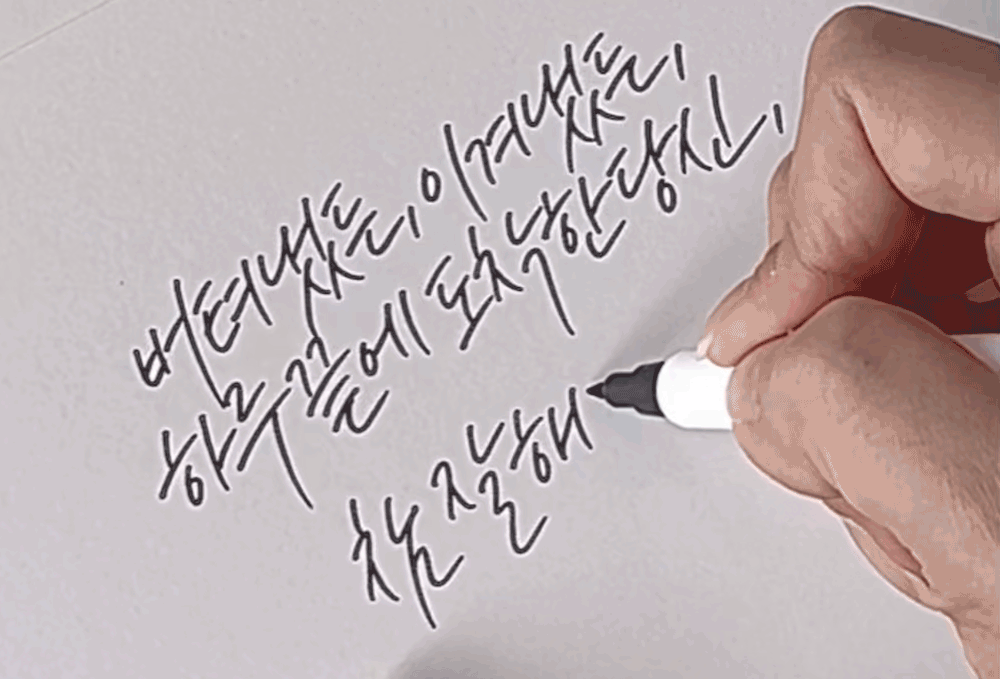 버텨냈든, 이겨냈든,
하루 끝에 도착한 당신,
참 잘해